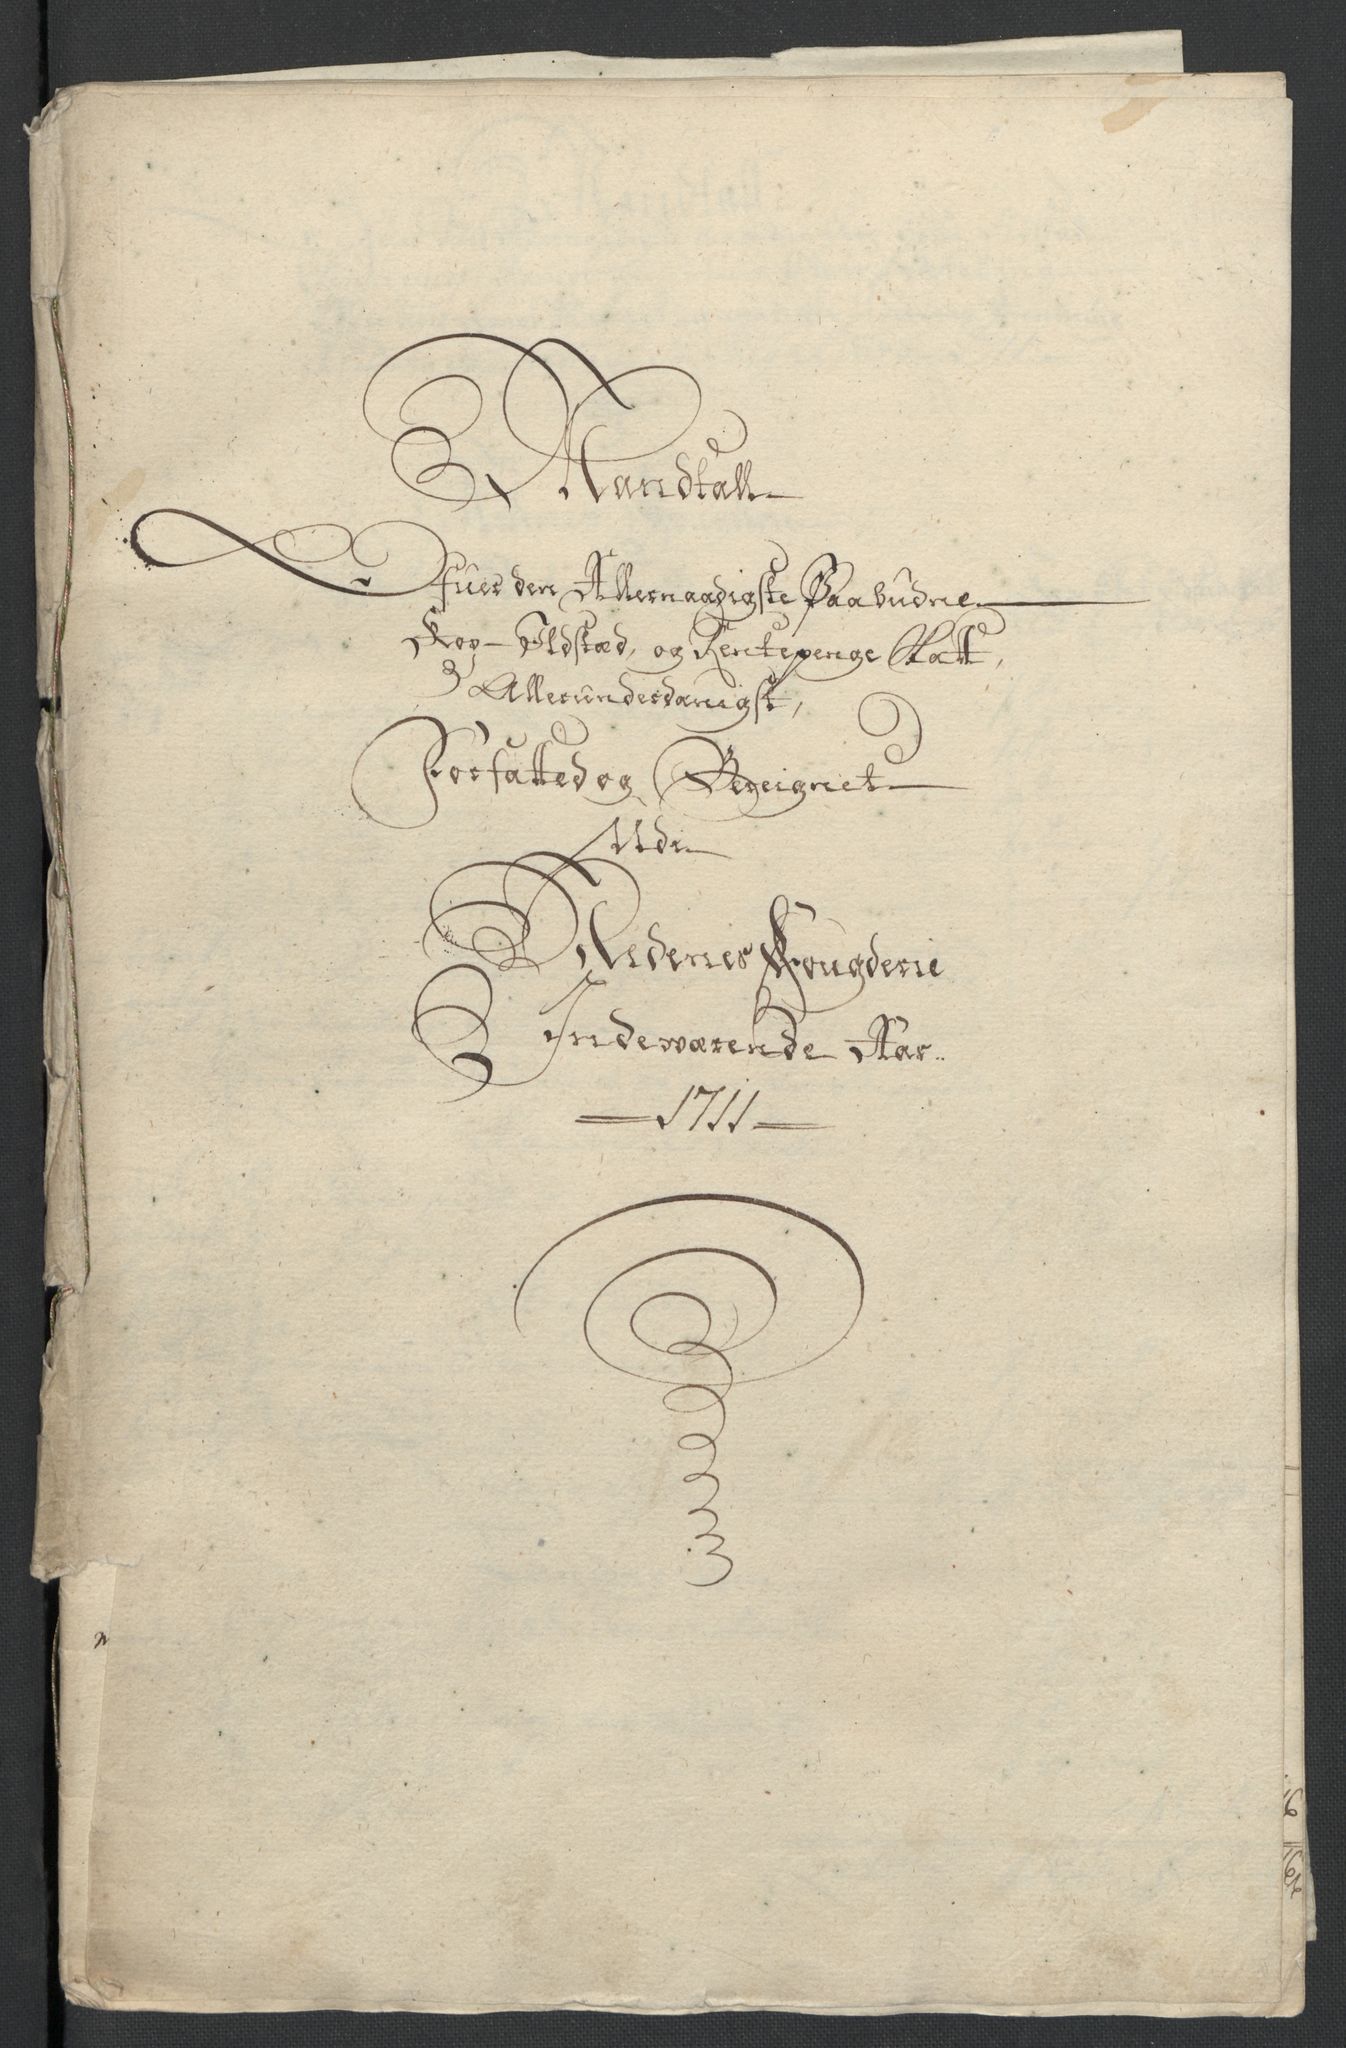 Mandtall
Ofuer den Allernaadigste Paabudne
Kop- Ildstæd, og Rentepenge Skatt,
Allerunderdanigst,
Forfatted og Beteignet
Udi
Nedenes Fougderie
Indeværende Aar
1711